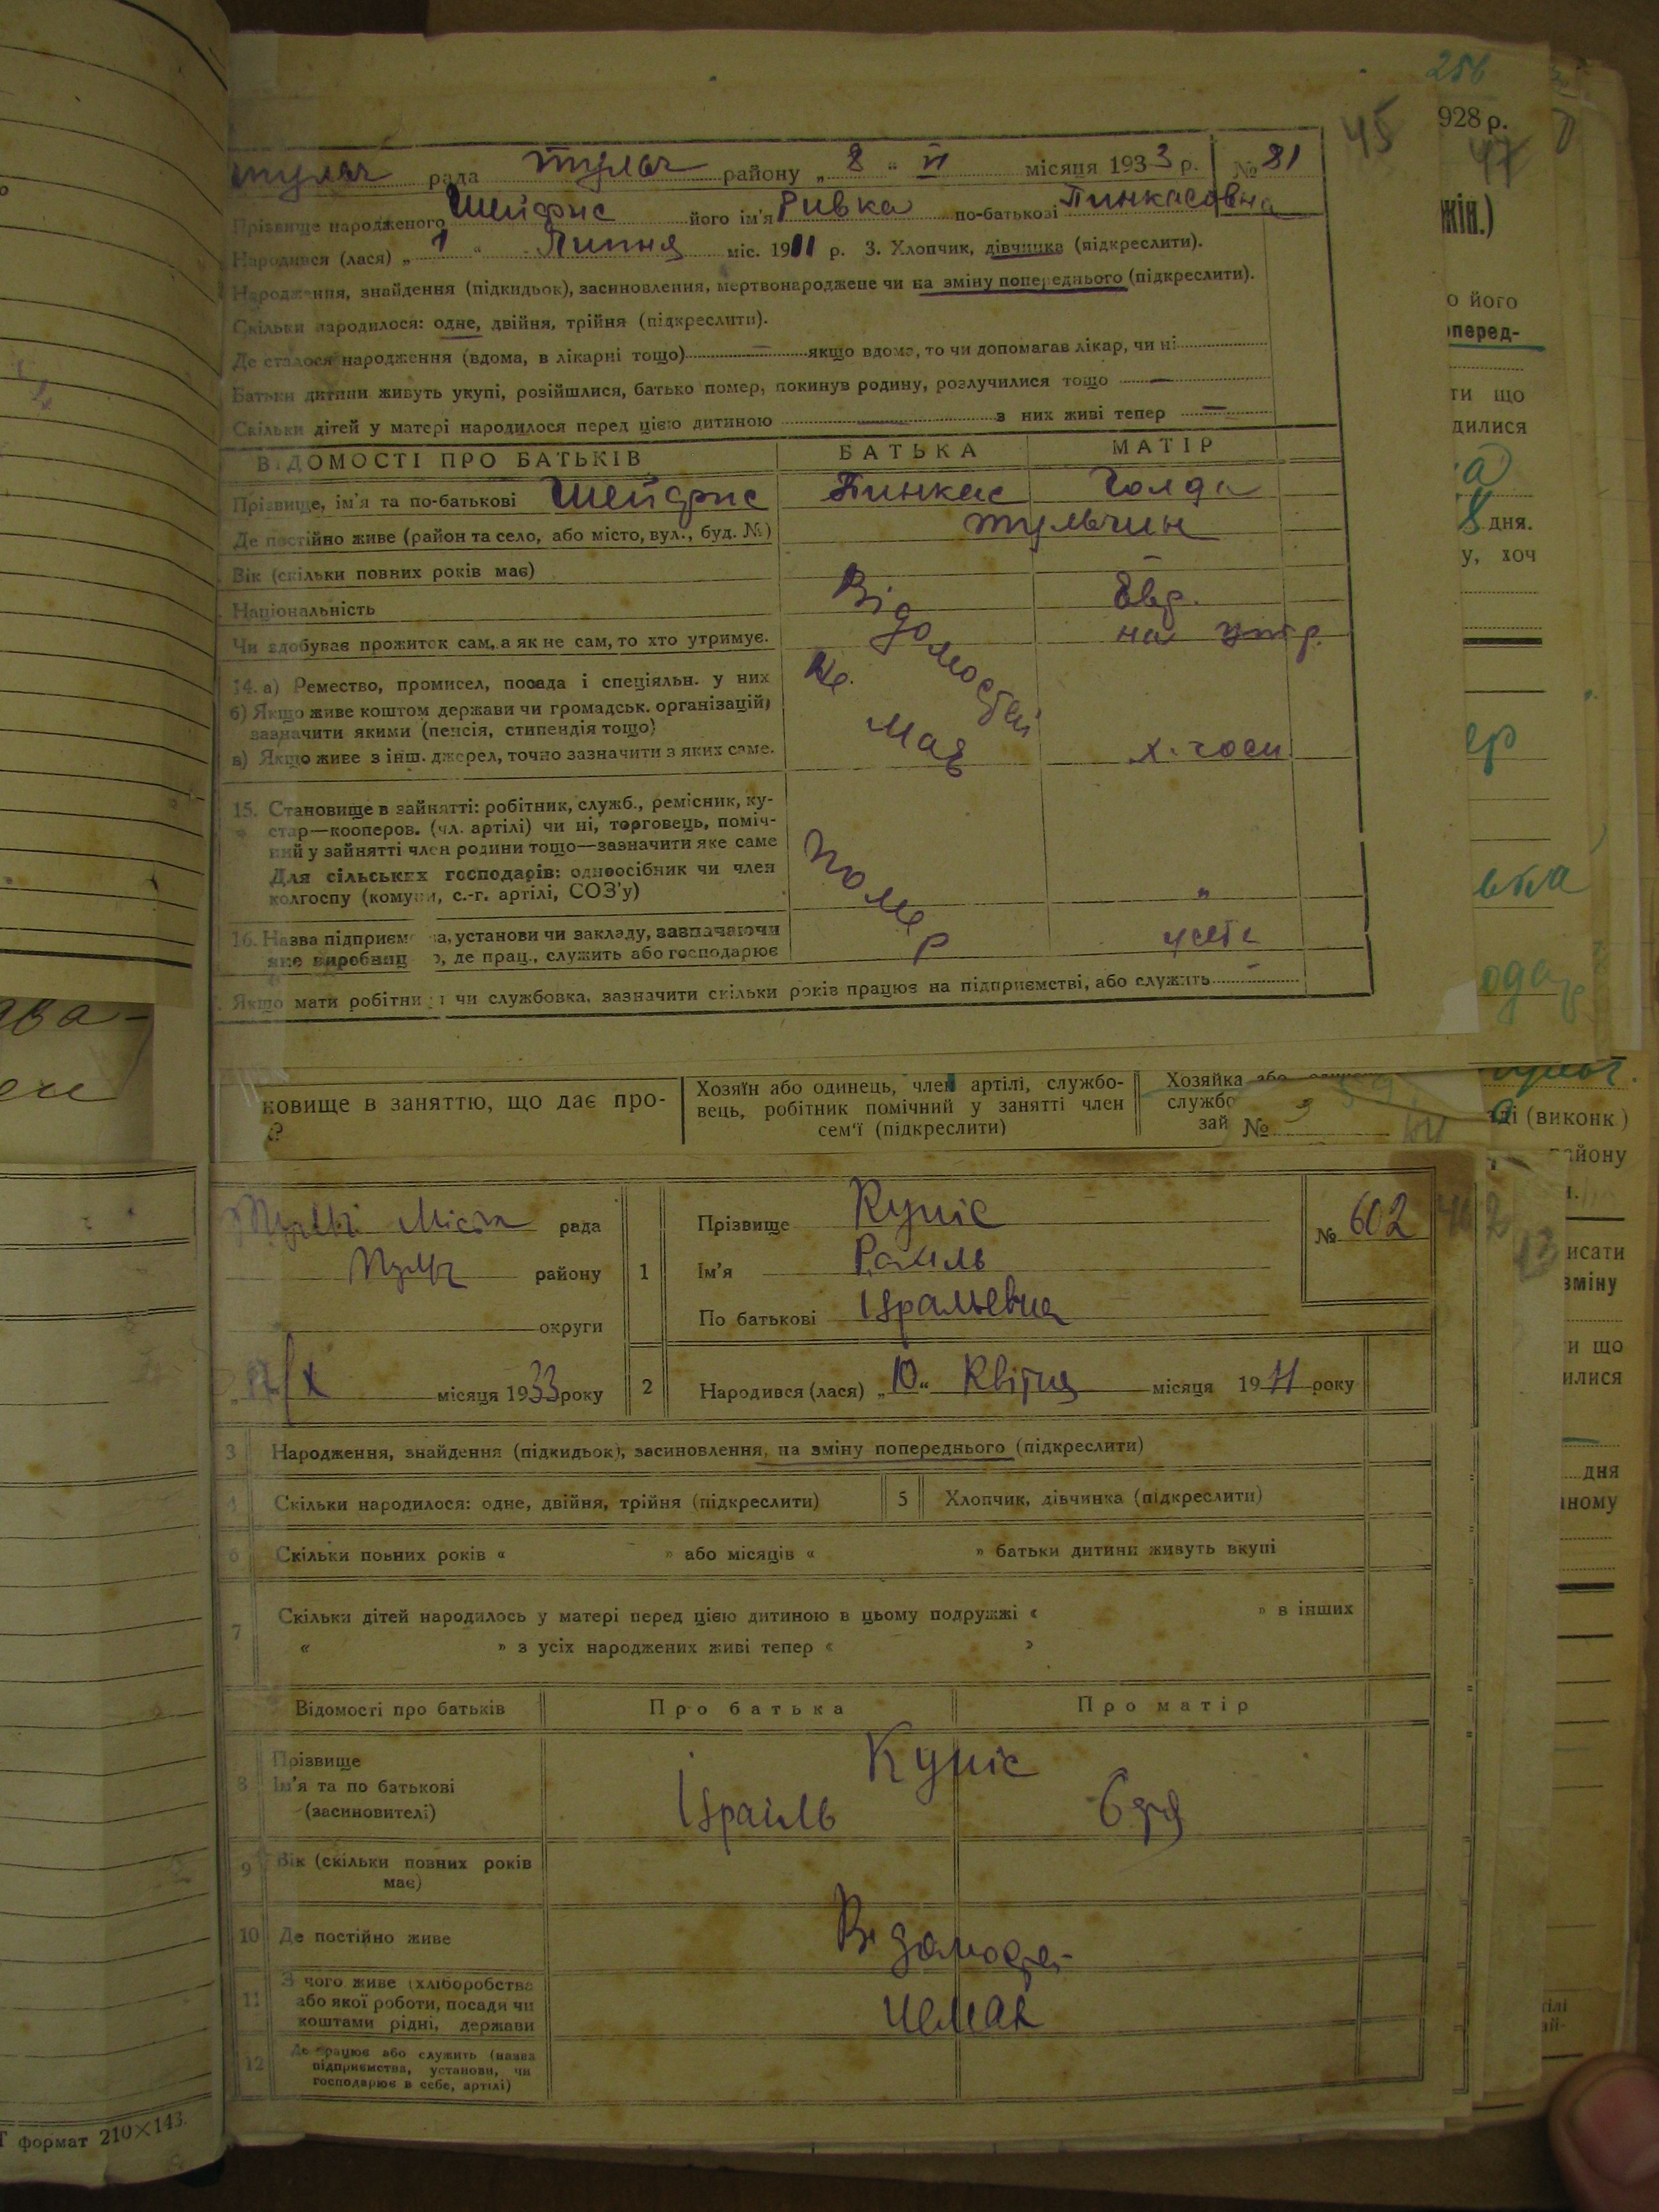 256
928 р.
45
47
тульч рада тульч району „ 8 “ II місяця 1933 р. № 81
Прізвище народженого Шейфис його ім'я Ривка по-батькові Пинкасовна
Народився (лася) „ 1 “ Липня міс. 1911 р. 3. Хлопчик, дівчинка (підкреслити).
Народження, знайдення (підкидьок), засиновлення, мертвонароджене чи на зміну попереднього (підкреслити).
Скільки народилося: одне, двійня, трійня (підкреслити).
Де сталося народження (вдома, в лікарні тощо) — якщо вдома, то чи допомагав лікар, чи ні
Батьки дитини живуть укупі, розійшлися, батько помер, покинув родину, розлучилися тощо —
Скільки дітей у матері народилося перед цією дитиною — з них живі тепер —
ВІДОМОСТІ ПРО БАТЬКІВ БАТЬКА МАТІР
Прізвище, ім'я та по-батькові Шейфис Пинкас Голда
Де постійно живе (район та село, або місто, вул., буд. №) тульчин
Вік (скільки повних років має)
Національність Євр.
Чи здобуває прожиток сам, а як не сам, то хто утримує. на утр.
Відомостей
не
має
14. а) Ремество, промисел, посада і спеціяльн. у них
б) Якщо живе коштом держави чи громадськ. організацій,
зазначити якими (пенсія, стипендія тощо)
в) Якщо живе з інш. джерел, точно зазначити з яких саме. х. госп.
15. Становище в зайнятті: робітник, служб., ремісник, ку-
стар—кооперов. (чл. артілі) чи ні, торговець, поміч-
ний у зайнятті член родини тощо—зазначити яке саме
Для сільських господарів: одноосібник чи член
колгоспу (комуни, с.-г. артілі, СОЗ'у) „
помер
16. Назва підприємства, установи чи закладу, зазначаючи
яке виробниц о, де прац., служить або господарює
Якщо мати робітниця чи службовка, зазначити скільки років працює на підприємстві, або служить —
ковище в заняттю, що дає про-
?
Хозяїн або одинець, член артілі, службо-
вець, робітник помічний у занятті член
сем'ї (підкреслити)
Хозяйка або
службо
зай
№
ді (виконк.)
району
Тульч Міська рада
Тульч району
округи
X місяця 1933 року
1 Прізвище Купіс
Ім'я Рахиль
По батькові Ізральевна
№ 602
2 Народився (лася) „ 10 “ Квітня місяця 1911 року
3 Народження, знайдення (підкидьок), засиновлення, на зміну попереднього (підкреслити)
4 Скільки народилося: одне, двійня, трійня (підкреслити) 5 Хлопчик, дівчинка (підкреслити)
6 Скільки повних років « » або місяців « » батьки дитини живуть вкупі
7 Скільки дітей народилось у матері перед цією дитиною в цьому подружжі « » в інших
« » з усіх народжених живі тепер « »
Відомості про батьків Про батька Про матір
8 Прізвище Купіс
Ім'я та по батькові
(засиновителі) Ізраіль
9 Вік (скільки повних років
має)
10 Де постійно живе Відомостей
11 З чого живе (хліборобства
або якої роботи, посади чи
коштами рідні, держави немає
12 Де працює або служить (назва
підприємства, установи, чи
господарює в себе, артілі)
о його
перед-
ти що
дилися
8 дня.
у, хоч
исати
зміну
и що
илися
дня
ному
Т формат 210×143.